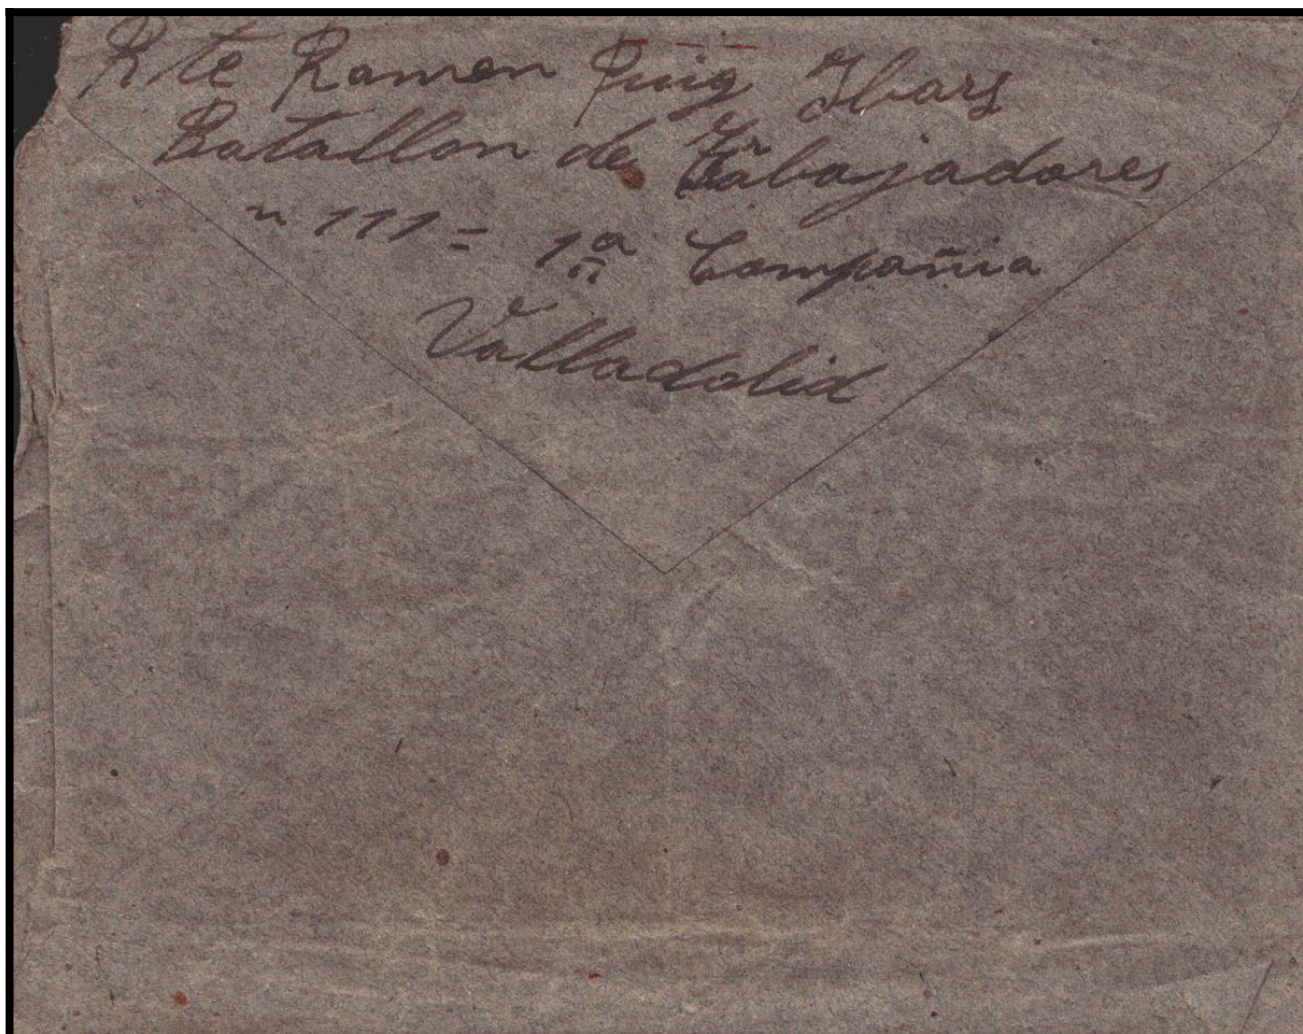 Rte Ramon Puig Ibars
Batallon de Trabajadores
n 111 = 1ª Compañia
Valladolid